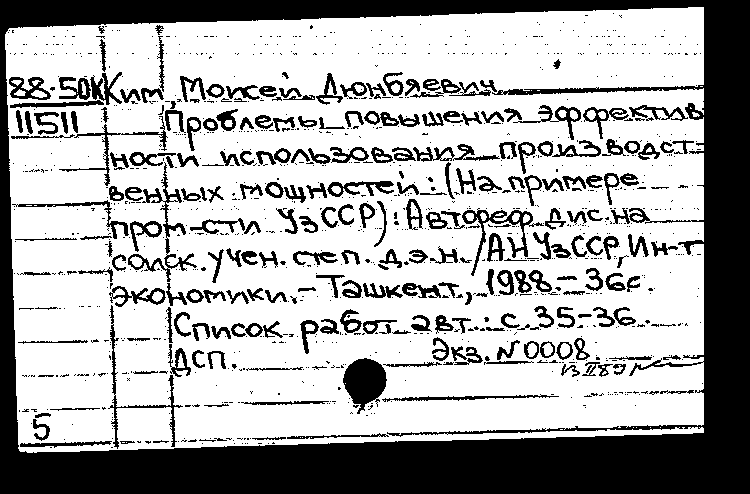 88-50К Ким, Моисей Дюнбяевич
11511 Проблемы повышения эффектив-
ности использования производст-
венных мощностей: (На примере
пром-сти УзССР): Автореф. дис. на
соиск. учен. степ. д.э.н. / АН УзССР, Ин-т
экономики. - Ташкент, 1988. - 36 с.
Список работ авт.: с. 35-36.
ДСП. Экз. N 0008.
5